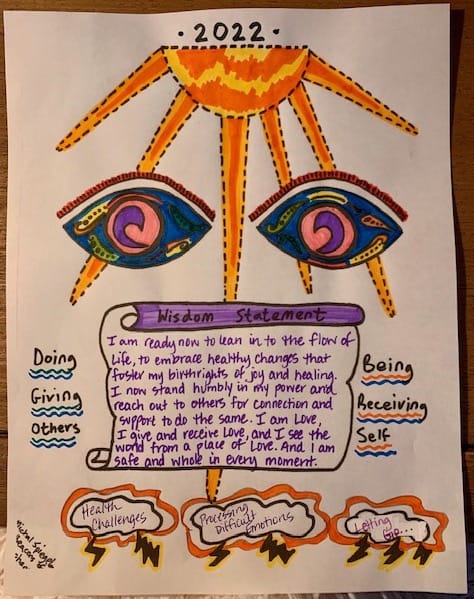 · 2022 ·
Wisdom Statement
I am ready now to lean in to the flow of
Life, to embrace healthy changes that
foster my birthrights of joy and healing.
I now stand humbly in my power and
reach out to others for connection and
support to do the same. I am Love,
I give and receive Love, and I see the
world from a place of Love. And I am
safe and whole in every moment.
Doing
Giving
Others
Being
Receiving
Self
Health
Challenges
Processing
Difficult
Emotions
Letting
Go...